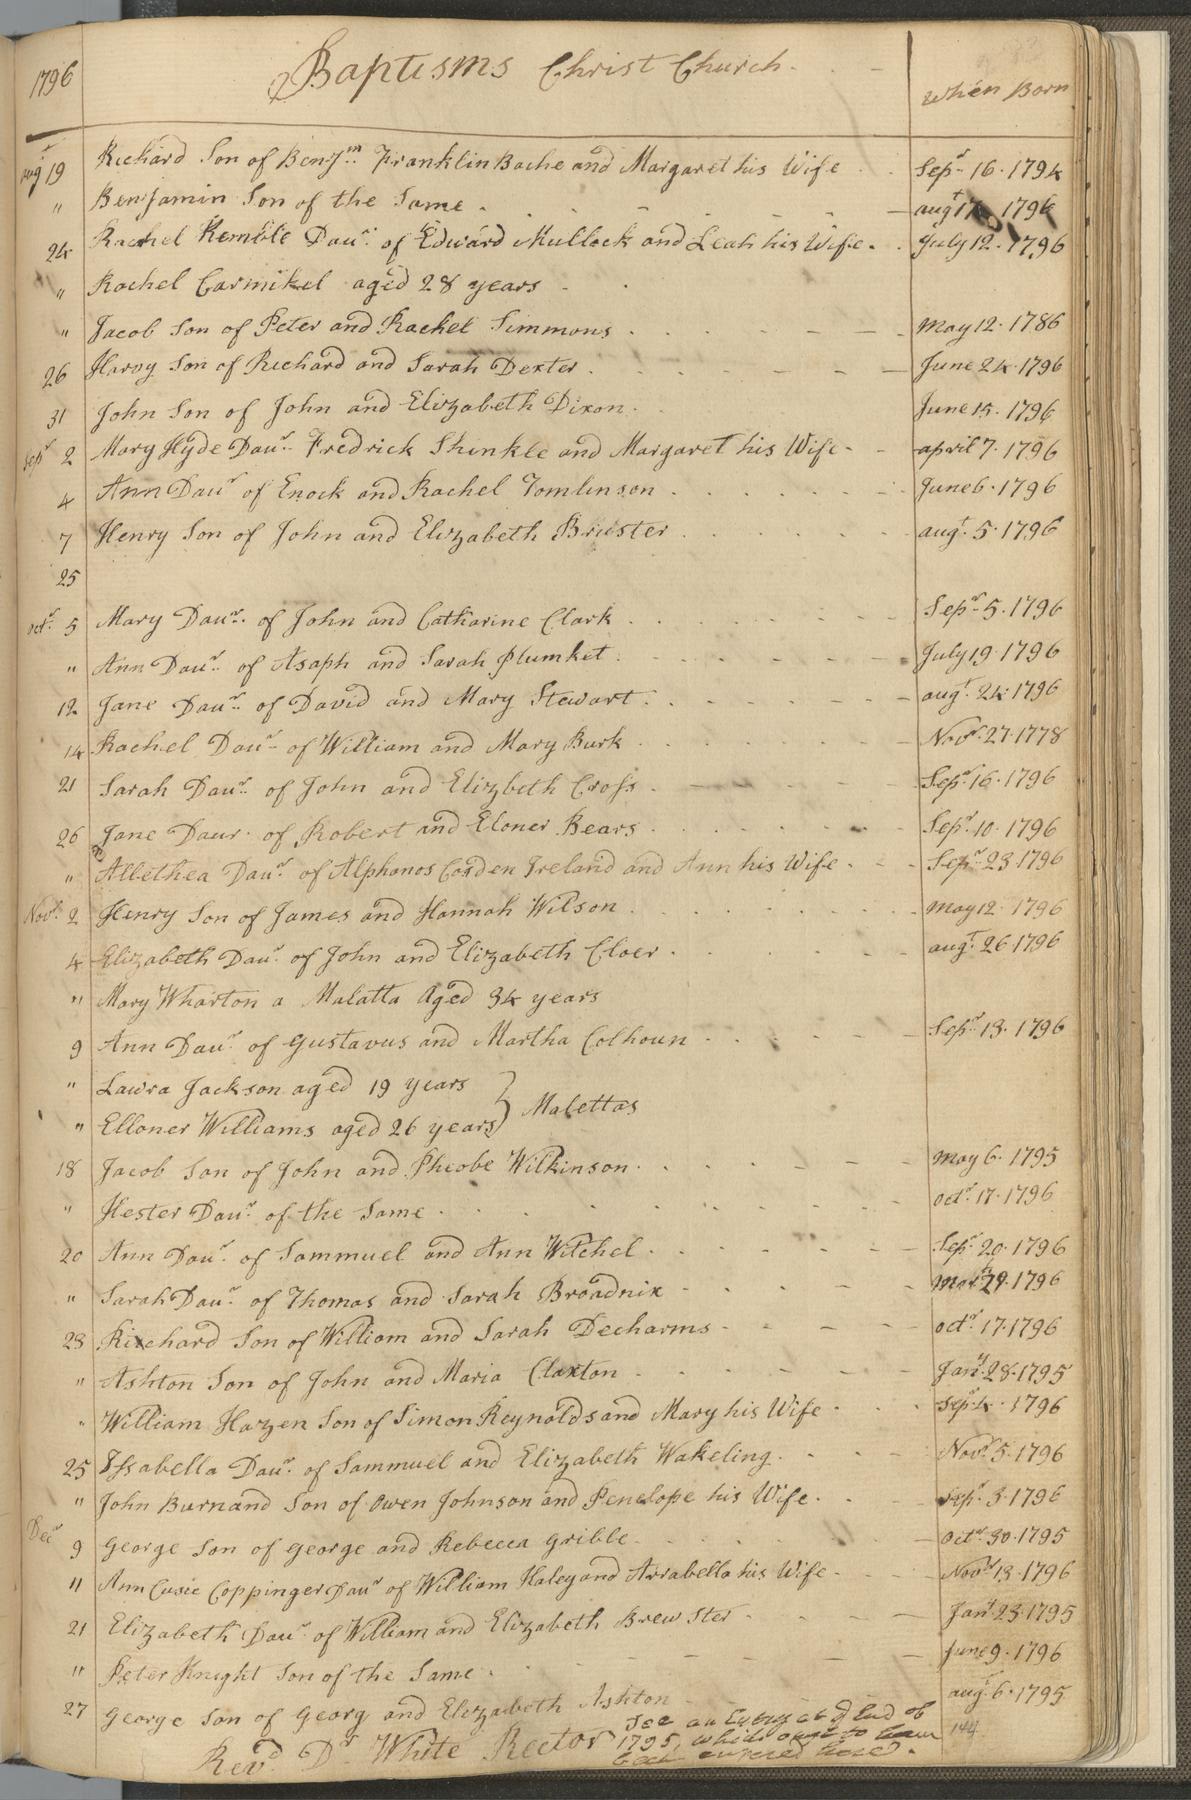 1796 Baptisms Christ Church. When Born
Augt 19 Richard Son of Benjm Franklin Bache and Margaret his Wife Sepr 16. 1794
" Benjamin Son of the Same augt 1796
24 Rachel Kemble Daur of Edward Mullock and Leah his Wife July 12. 1796
" Rachel Carmikel aged 28 years
" Jacob Son of Peter and Rachel Simmons May 12. 1786
26 Harvy Son of Richard and Sarah Dexter June 24. 1796
31 John Son of John and Elizabeth Dixon June 15. 1796
Sepr 2 Mary Hyde Daur Fredrick Shinkle and Margaret his Wife april 7. 1796
4 Ann Daur of Enock and Rachel Tomlinson June 6. 1796
7 Henry Son of John and Elizabeth Brister augt 5. 1796
25
octr 5 Mary Daur of John and Catharine Clark Sepr 5. 1796
" Ann Daur of Asaph and Sarah Plumket July 19. 1796
12 Jane Daur of David and Mary Stewart augt 24. 1796
14 Rachel Daur of William and Mary Burk Novr 27. 1778
21 Sarah Daur of John and Elizbeth Cross Sepr 16. 1796
26 Jane Daur of Robert and Eloner Bears Sepr 10. 1796
" Allethea Daur of Alphonos Cosden Ireland and Ann his Wife Sepr 23 1796
Novr 2 Henry Son of James and Hannah Wilson May 12. 1796
4 Elizabeth Daur of John and Elizabeth Cloer augt 26 1796
" Mary Wharton a Malatta Aged 34 years
9 Ann Daur of Gustavus and Martha Colhoun Sepr 13. 1796
" Lawra Jackson aged 19 years
" Elloner Williams aged 26 years } Malettas
18 Jacob Son of John and Pheobe Wilkinson May 6. 1795
" Hester Daur of the Same octr 17. 1796
20 Ann Daur of Sammuel and Ann Witchel Sepr 20. 1796
" Sarah Daur of Thomas and Sarah Broadnix 29. 1796
23 Richard Son of William and Sarah Decharms octr 17. 1796
" Ashton Son of John and Maria Claxton Jany 28. 1795
" William Hazen Son of Simon Reynolds and Mary his Wife Sepr 4. 1796
25 Issabella Daur of Sammuel and Elizabeth Wakeling Novr 5. 1796
" John Burnand Son of Owen Johnson and Penelope his Wife Sepr 3. 1796
Decr 9 George Son of George and Rebecca Grible octr 30. 1795
11 Ann Cusic Coppinger Daur of William Haley and Arrabella his Wife Novr 13. 1796
21 Elizabeth Daur of William and Elizabeth Brewster Jany 23. 1795
" Peter Knight Son of the Same June 9. 1796
27 George Son of Georg and Elizabeth Ashton augt 6. 1795
Revd Dr White Rector
See an Entry at ye End of
1795, which ought to have
been entered here.
144